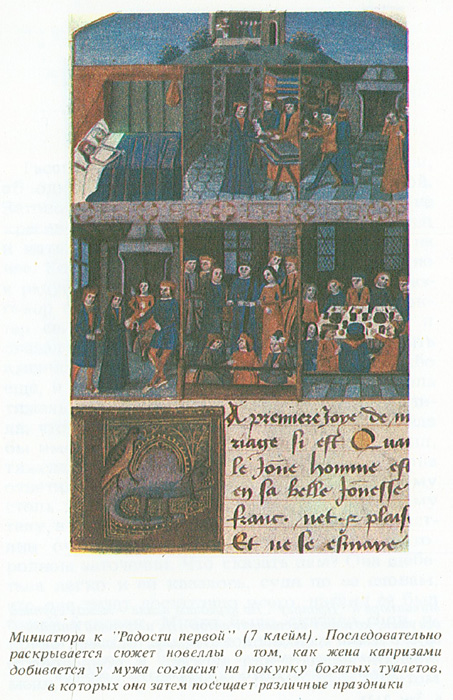 A premiere Joye de m
riage si est Quan
le Jone homme est
en sa belle Jonesse
franc. net. & plaise
Et ne se esmaye
Миниатюра к "Радости первой" (7 клейм). Последовательно
раскрывается сюжет новеллы о том, как жена капризами
добивается у мужа согласия на покупку богатых туалетов,
в которых она затем посещает различные праздники